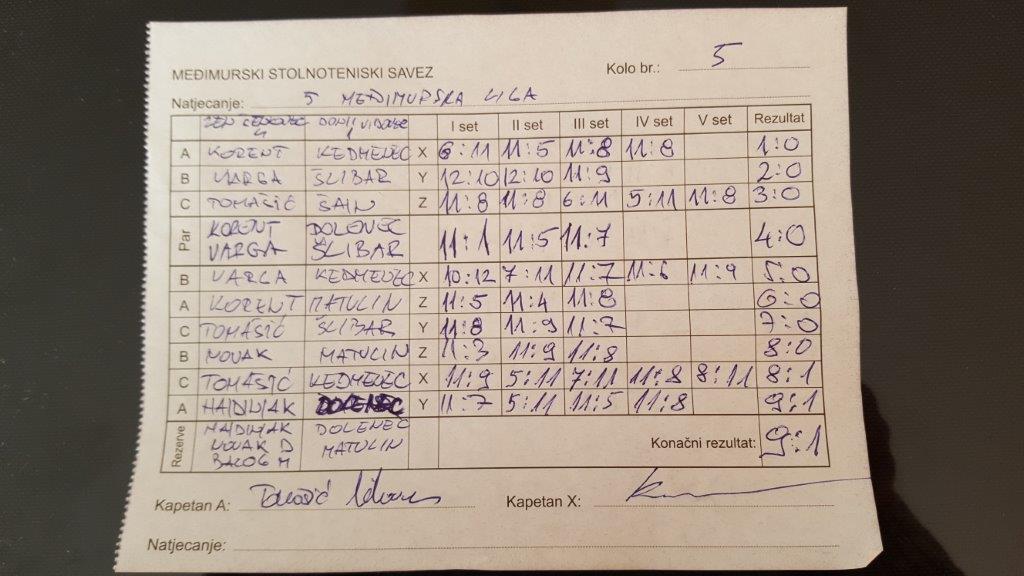 MEĐIMURSKI STOLNOTENISKI SAVEZ Kolo br.: 5
Natjecanje: 5 MEĐIMURSKA LIGA
I set II set III set IV set V set Rezultat
A KORENT KEDMENEC X 6:11 11:5 11:8 11:8 1:0
B VARGA ŠLIBAR Y 12:10 12:10 11:9 2:0
C TOMAŠIĆ ŠAIN Z 11:8 11:8 6:11 5:11 11:8 3:0
Par KORENT DOLENEC 11:1 11:5 11:7 4:0
VARGA ŠLIBAR
B VARGA KEDMENEC X 10:12 7:11 11:7 11:6 11:9 5:0
A KORENT MATULIN Z 11:5 11:4 11:8 6:0
C TOMAŠIĆ ŠLIBAR Y 11:8 11:9 11:7 7:0
B NOVAK MATULIN Z 11:3 11:9 11:8 8:0
C TOMAŠIĆ KEDMENEC X 11:9 5:11 7:11 11:8 8:11 8:1
A HAJDINJAK DOLENEC Y 11:7 5:11 11:5 11:8 9:1
Rezerve HAJDINJAK DOLENEC
NOVAK D MATULIN Konačni rezultat: 9:1
BALOG M
Kapetan A: Tomašić Kapetan X:
Natjecanje: